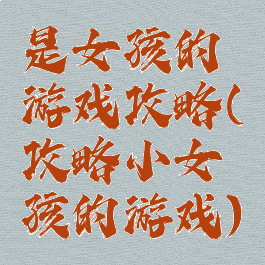 是女孩的
游戏攻略(
攻略小女
孩的游戏)